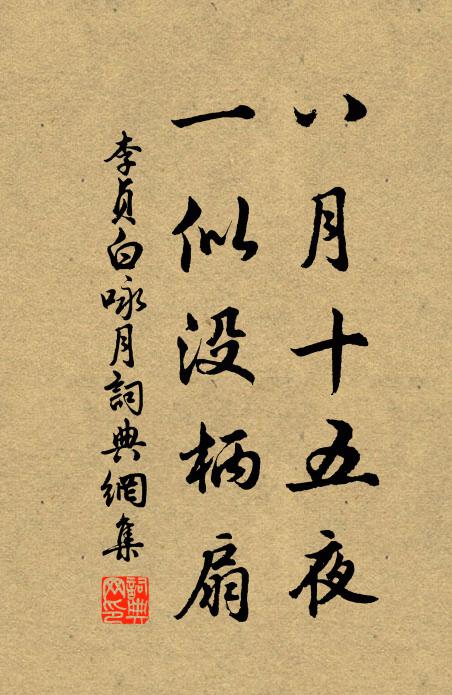 八月十五夜
一似没柄扇
李貞白咏月詞典網集
詞典
网印